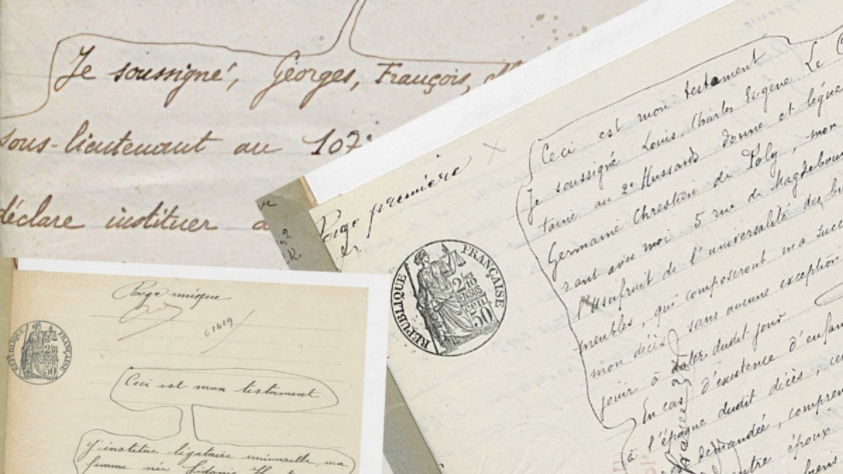 Je soussigné, Georges, François,
sous-lieutenant au 107e
déclare instituer
Page première
RÉPUBLIQUE FRANÇAISE
Ceci est mon testament
Je soussigné Louis Charles Eugène Le
taine au 2e Hussards donne et lègue
Germaine Chrestien de Poly, mon
rant avec moi 5 rue de Magdebourg
l'usufruit de l'universalité des
meubles, qui composeront ma
mon décès, sans aucune exception
jouir à dater dudit jour
En cas d'existence d'enfan
à l'époque dudit décès,
demandée,
entre époux
Page unique
RÉPUBLIQUE FRANÇAISE
Ceci est mon testament
J'institue légataire universelle, ma
femme née